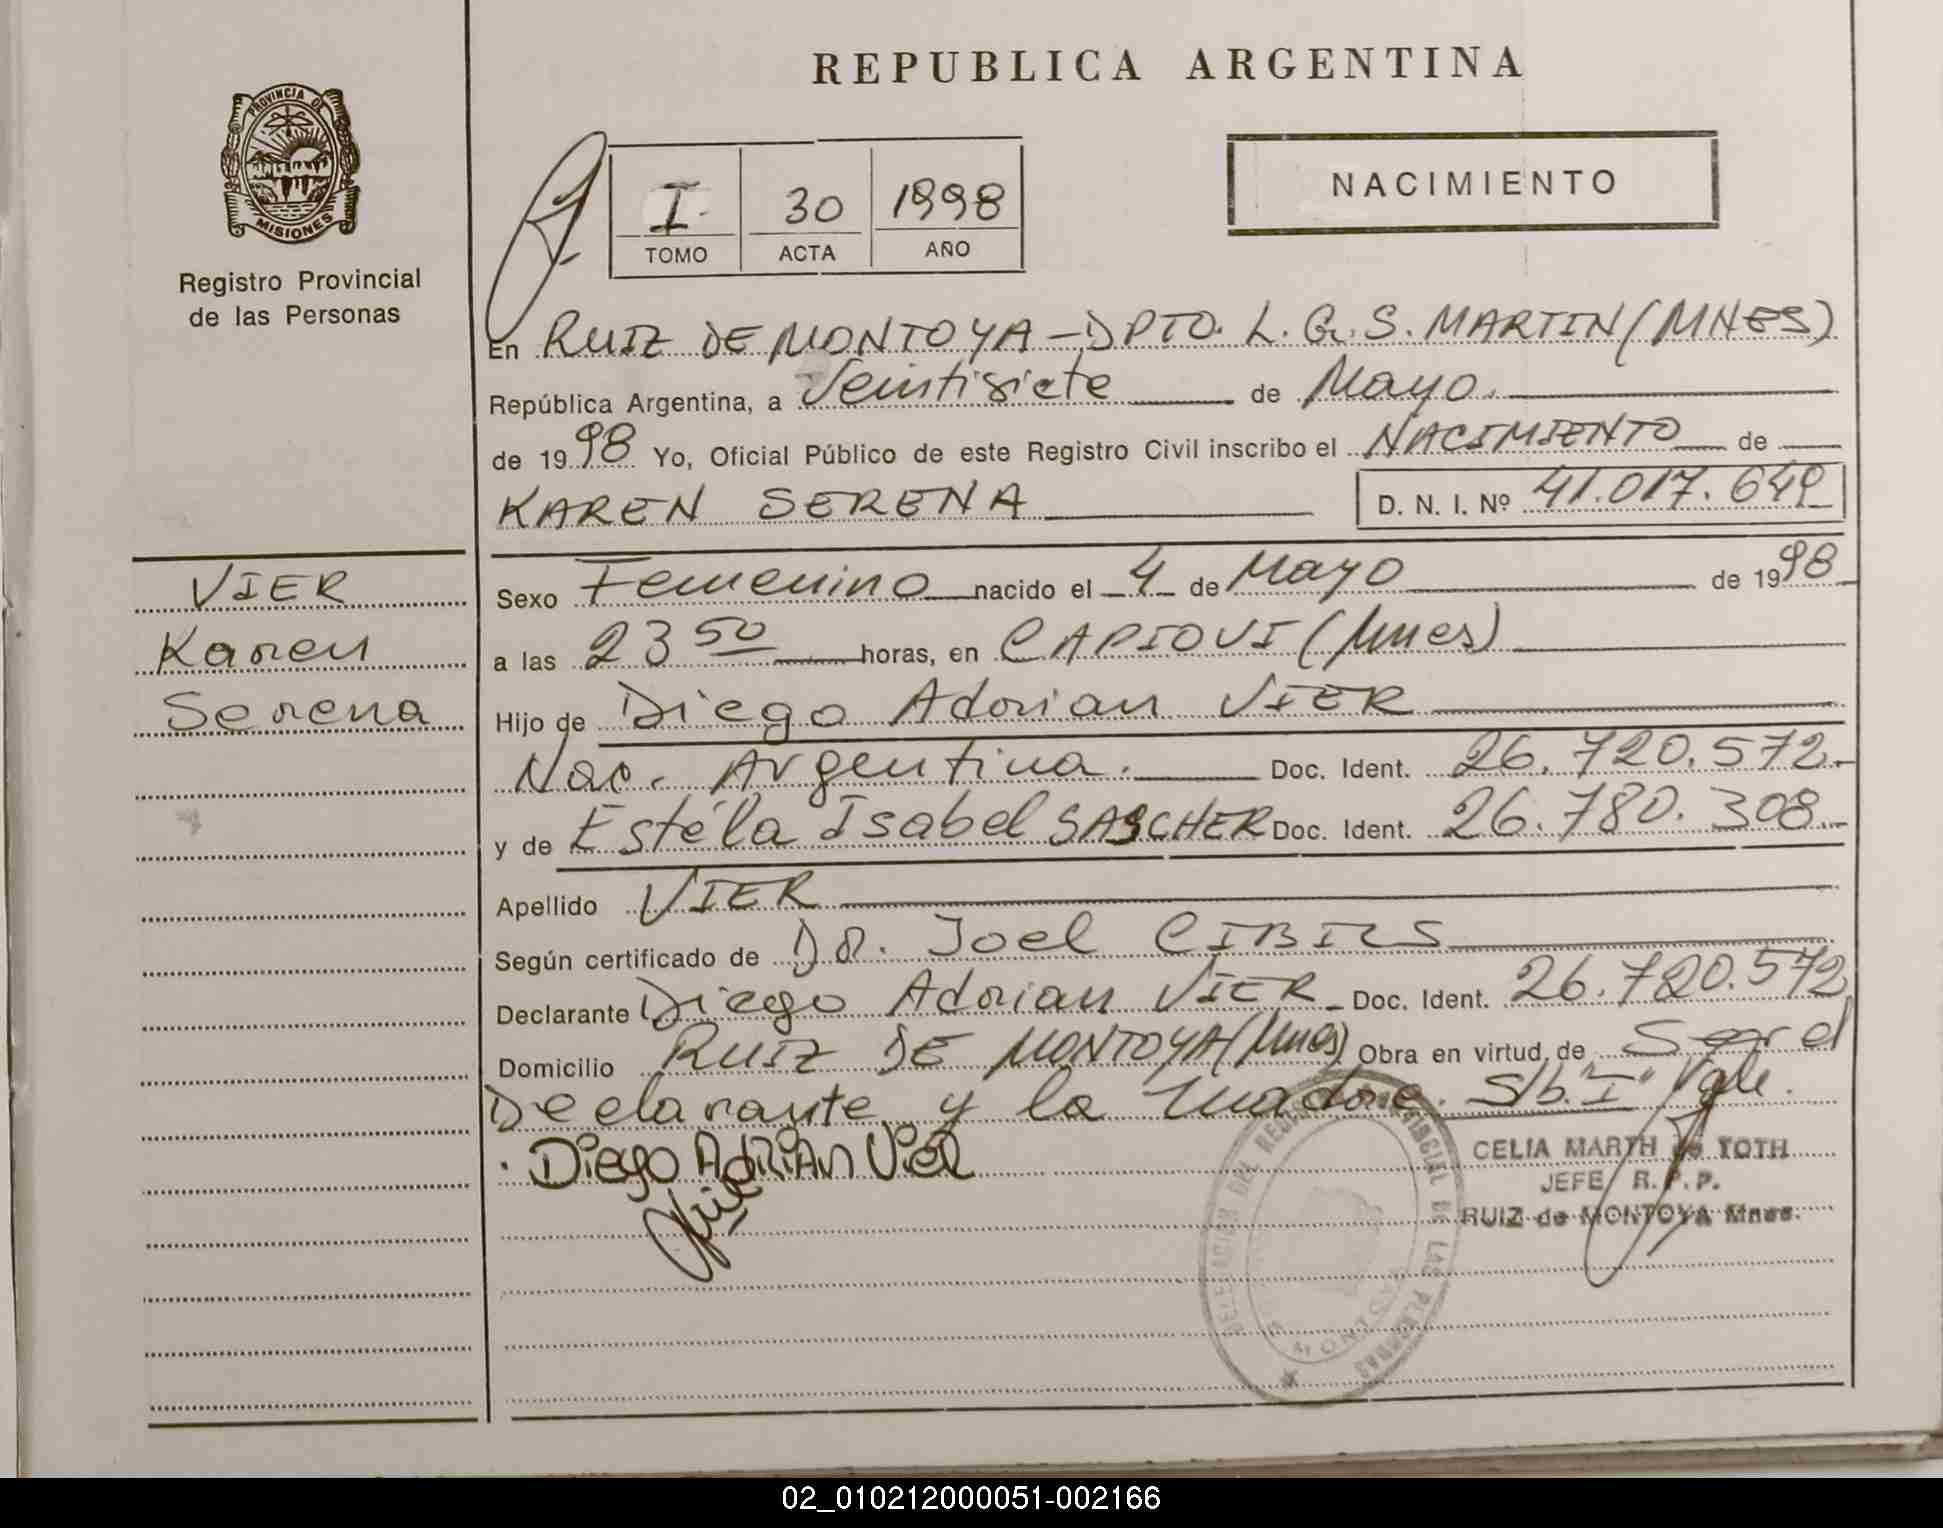 REPUBLICA ARGENTINA
PROVINCIA DE
MISIONES
Registro Provincial
de las Personas
I 30 1998
TOMO ACTA AÑO
NACIMIENTO
En RUIZ DE MONTOYA - DPTO. L. G. S. MARTIN (MNES)
República Argentina, a Veintisiete de Mayo.
de 1998 Yo, Oficial Público de este Registro Civil inscribo el NACIMIENTO de
KAREN SERENA D. N. I. Nº 41.017.649
VIER
Karen
Serena
Sexo Femenino nacido el 4 de Mayo de 1998
a las 23 50 horas, en CAPIOVI (Mnes)
Hijo de Diego Adrian VIER
Nac. Argentina. Doc. Ident. 26.720.572.-
y de Estela Isabel SASCHER Doc. Ident. 26.780.308.-
Apellido VIER
Según certificado de Dr. Joel CIBILS
Declarante Diego Adrian VIER Doc. Ident. 26.720.572
Domicilio RUIZ DE MONTOYA (Mnes) Obra en virtud de Ser el
Declarante y la Madre. S/b. "I" Vale.
Diego ADRIAN ViER
CELIA MARTH de TOTH
JEFE R.P.P.
RUIZ de MONTOYA Mnes.
DELEGACION DEL REGISTRO PROVINCIAL DE LAS PERSONAS
02_010212000051-002166